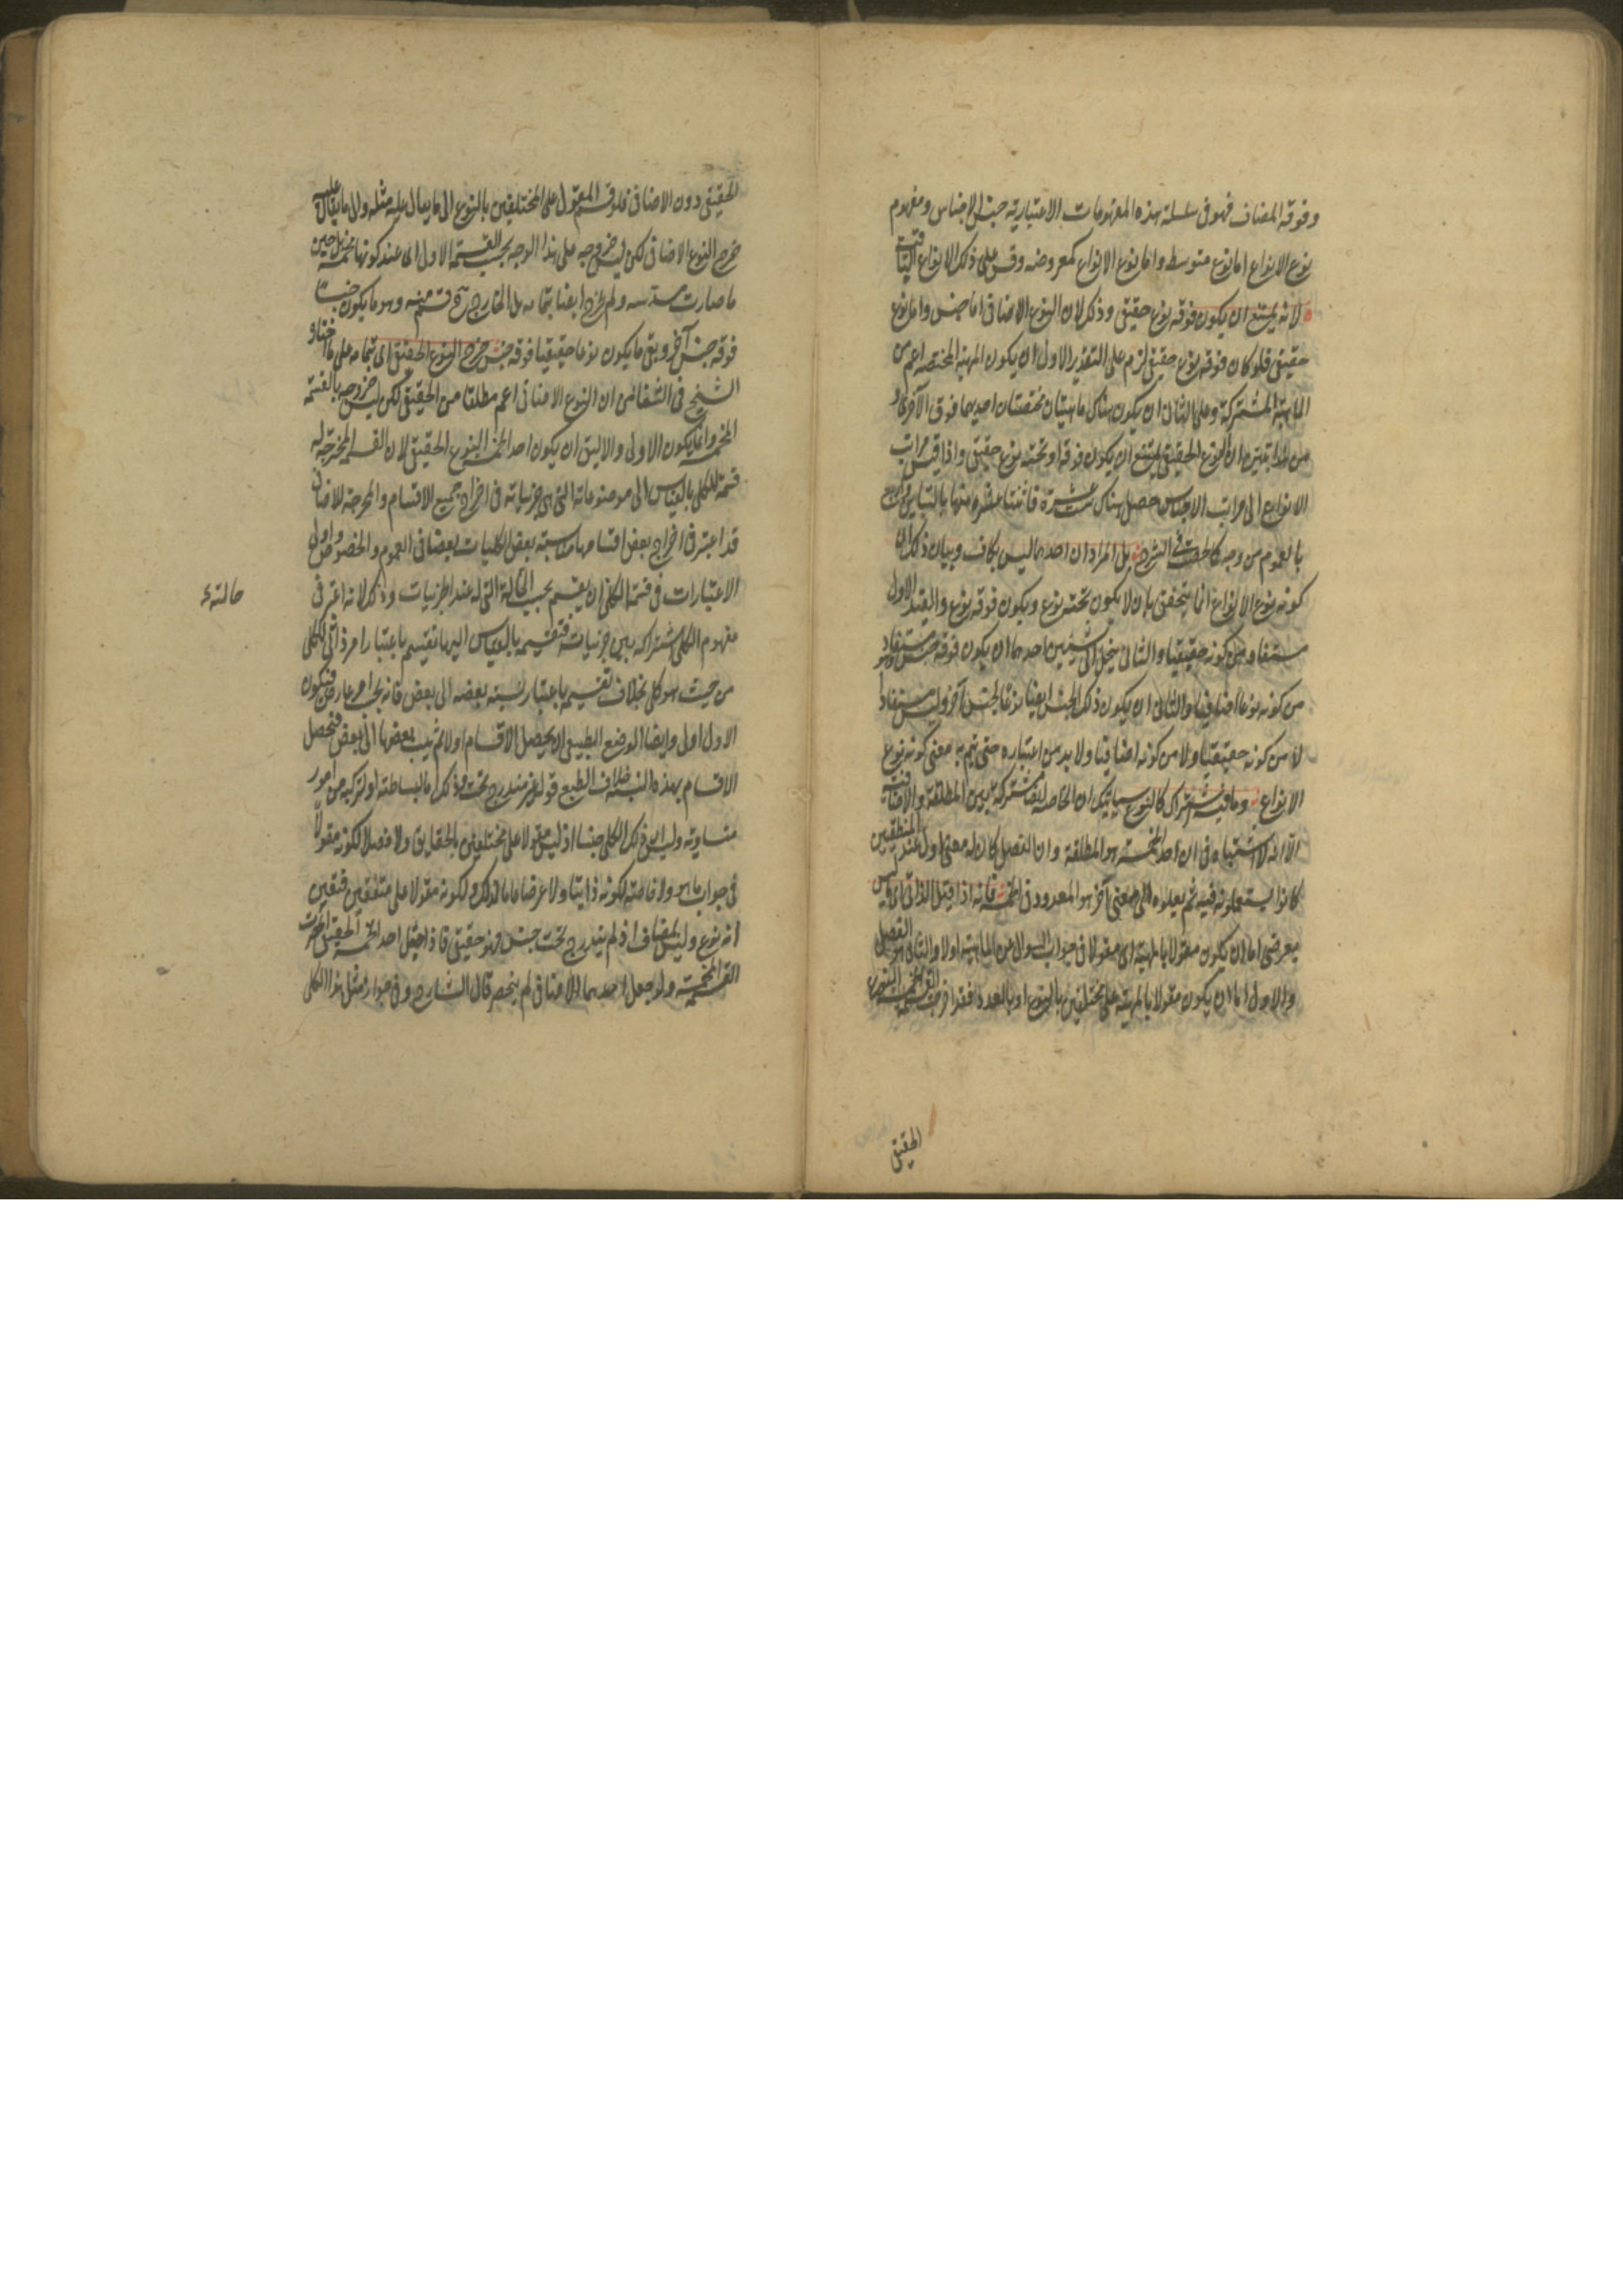 وفوقه المضاف فهو فى سلسلة هذه المفهومات الاعتبارية جنس الاجناس ومفهوم
نوع الانواع اما نوع متوسط واما نوع الانواع كمعروضه وقس على ذلك الانواع
لانه يمتنع ان يكون فوقه نوع حقيقى وذلك لان النوع الاضافى اما جنس واما نوع
حقيقى فلو كان فوقه نوع حقيقى لزم على التقدير الاول ان يكون المهية المختصة اعم من
الماهية المشتركة وعلى الثانى ان يكون هناك ماهيتان مختصتان احديهما فوق الاخرى
من ان النوع الحقيقى يمتنع ان يكون فوقه او تحته نوع حقيقى واذا قيس مراتب
الانواع الى مراتب الاجناس حصل هناك ستة عشرة منها بالتباين
بالعموم من وجه كما فى الشرح بل المراد ان احدهما ليس بكاف وبيان ذلك ان
كونه نوع الانواع انما يتحقق بان لا يكون تحته نوع ويكون فوقه نوع والقيد الاول
مستفاد من كونه حقيقيا والثانى ينحل الى شيئين احدهما ان يكون فوقه جنس وهو مستفاد
من كونه نوعا اضافيا والثانى ان يكون ذلك الجنس ايضا نوعا لجنس آخر وليس مستفادا
لا من كونه حقيقيا ولا من كونه اضافيا ولا بد من اعتباره حتى يتم به معنى كونه نوع
الانواع وما فيه اشتراك كالنوع سيأتيك ان الخاصة ايضا مشتركة بين المطلقة والاضافية
الا انه لا اشتباه فى ان احد الخمسة هو المطلقة وان الفصل كان له معنى اول عند المنطقيين
كانوا يستعملونه فيه ثم نقلوه الى معنى آخر هو المعدود فى الخمسة فانه اذا قيل الذاتى اى ما ليس
بعرضى اما ان يكون مقولا بالمهية اى مقولا فى جواب السوال عن الماهية اولا والثانى هو الفصل
والاول اما ان يكون مقولا بالمهية على مختلفين بالنوع او بالعدد فقد اخرجت القسمة المخمسة النوع
الحقيقى
الحقيقى دون الاضافى فلو قسم المقول على المختلفين بالنوع الى ما يقال عليه مثله والى ما لا يقال عليه
خرج النوع الاضافى لكن ليس خروجه على هذا الوجه بحسب القسمة الاولى اى عند كونها مخمسة بل حين
ما صارت مسدسة ولم يخرج ايضا بتمامه بل الخارج قسم منه وهو ما يكون جنسا
فوقه جنس آخر وبقى ما يكون نوعا حقيقيا فوقه جنس خرج النوع الحقيقى اى بتمامه على ما اختاره
الشيخ فى الشفا من ان النوع الاضافى اعم مطلقا من الحقيقى لكن ليس خروجه بالقسمة
المخمسة وانما يكون الاولى والاليق ان يكون احد الخمسة النوع الحقيقى لان القسمة المخرجة له
قسمة للكلى بالقياس الى موضوعاته التى هى جزئياته فى اخراج جميع الاقسام والمخرجة للاضافى
قد اعتبر فى اخراج بعض اقسامها مناسبة بعض الكليات بعضا فى العموم والخصوص واولى
الاعتبارات فى قسمة الكلى ان يقسم بحسب الحالة التى له عند الجزئيات وذلك لانه اعتبر فى
حالته
مفهوم الكلى اشتراكه بين جزئيات فتقسيمه بالقياس اليها تقسيم باعتبار امر ذاتى للكلى
من حيث هو كلى بخلاف تقسيمه باعتبار نسبة بعضه الى بعض فانه بحال امر عارض فيكون
الاول اولى وايضا الوضع الطبيعى ان يحصل الاقسام اولا ثم ينسب بعضها الى بعض فتحصل
الاقسام بهذه النسبة خلاف الطبع قوله غير مندرج تحت وذلك اما لبساطته او لتركبه من امور
متساوية وليس ذلك الكلى جنسا اذ ليس مقولا على مختلفين بالحقايق ولا فصلا لكونه مقولا
فى جواب ما هو ولا خاصة لكونه ذاتيا ولا عرضا عاما لذلك ولكونه مقولا على متفقين فتعين
انه نوع وليس بمضاف اذ لم يندرج تحت جنس فهو حقيقى فاذا جعل احد الخمسة الحقيقى انحصرت
القسمة المخمسة ولو جعل احدهما الاضافى لم ينحصر قال الشارح وفى جواز مثل هذا الكلى